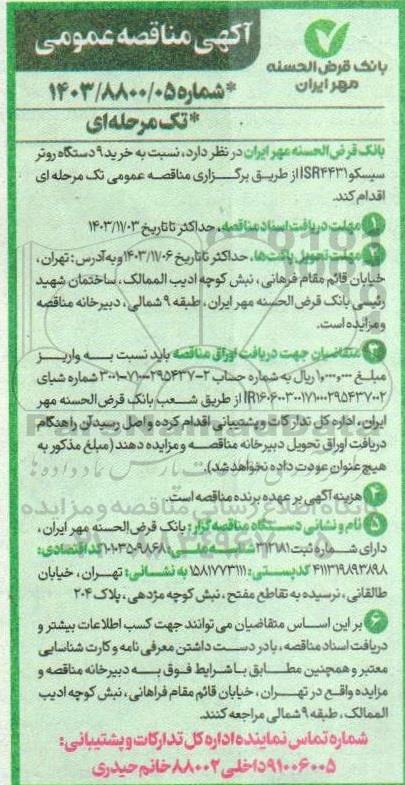 آگهی مناقصه عمومی
بانک قرض الحسنه
مهر ایران
*شماره ۱۴۰۳/۸۸۰۰/۰۵
*تک مرحله‌ای
بانک قرض الحسنه مهر ایران در نظر دارد، نسبت به خرید ۹ دستگاه روتر
سیسکو ISR۴۴۳۱ از طریق برگزاری مناقصه عمومی تک مرحله ای
اقدام کند.
۱ مهلت دریافت اسناد مناقصه، حداکثر تا تاریخ ۱۴۰۳/۱۱/۰۳
۲ مهلت تحویل پاکت‌ها، حداکثر تا تاریخ ۱۴۰۳/۱۱/۰۶ و به آدرس: تهران،
خیابان قائم مقام فرهانی، نبش کوچه ادیب الممالک، ساختمان شهید
رئیسی بانک قرض الحسنه مهر ایران، طبقه ۹ شمالی، دبیرخانه مناقصه
و مزایده است.
۳ متقاضیان جهت دریافت اوراق مناقصه باید نسبت به واریز
مبلغ ۱,۰۰۰,۰۰۰ ریال به شماره حساب ۲-۲۹۵۴۳۷-۷۱۰۰۰-۳۰۰۱ شماره شبای
از طریق شعب بانک قرض الحسنه مهر
ایران، اداره کل تدارکات و پشتیبانی اقدام کرده و اصل رسید آن را هنگام
دریافت اوراق تحویل دبیرخانه مناقصه و مزایده دهند (مبلغ مذکور به
هیچ عنوان عودت داده نخواهد شد).
۴ هزینه آگهی بر عهده برنده مناقصه است.
۵ نام و نشانی دستگاه مناقصه گزار: بانک قرض الحسنه مهر ایران،
دارای شماره ثبت ۳۱۲۱۸۱ شناسه ملی: ۱۰۱۰۳۵۰۹۸۶۸ کد اقتصادی:
۴۱۱۳۱۹۸۹۳۸۹۸ کد پستی: ۱۵۸۱۷۷۳۱۱۱ به نشانی: تهران، خیابان
طالقانی، نرسیده به تقاطع مفتح، نبش کوچه مژدهی، پلاک ۲۰۴
۶ بر این اساس متقاضیان می توانند جهت کسب اطلاعات بیشتر و
دریافت اسناد مناقصه، با در دست داشتن معرفی نامه و کارت شناسایی
معتبر و همچنین مطابق با شرایط فوق به دبیرخانه مناقصه و
مزایده واقع در تهران، خیابان قائم مقام فراهانی، نبش کوچه ادیب
الممالک، طبقه ۹ شمالی مراجعه کنند.
شماره تماس نماینده اداره کل تدارکات و پشتیبانی:
۹۱۰۰۶۰۰۵ داخلی ۸۸۰۰۲ خانم حیدری